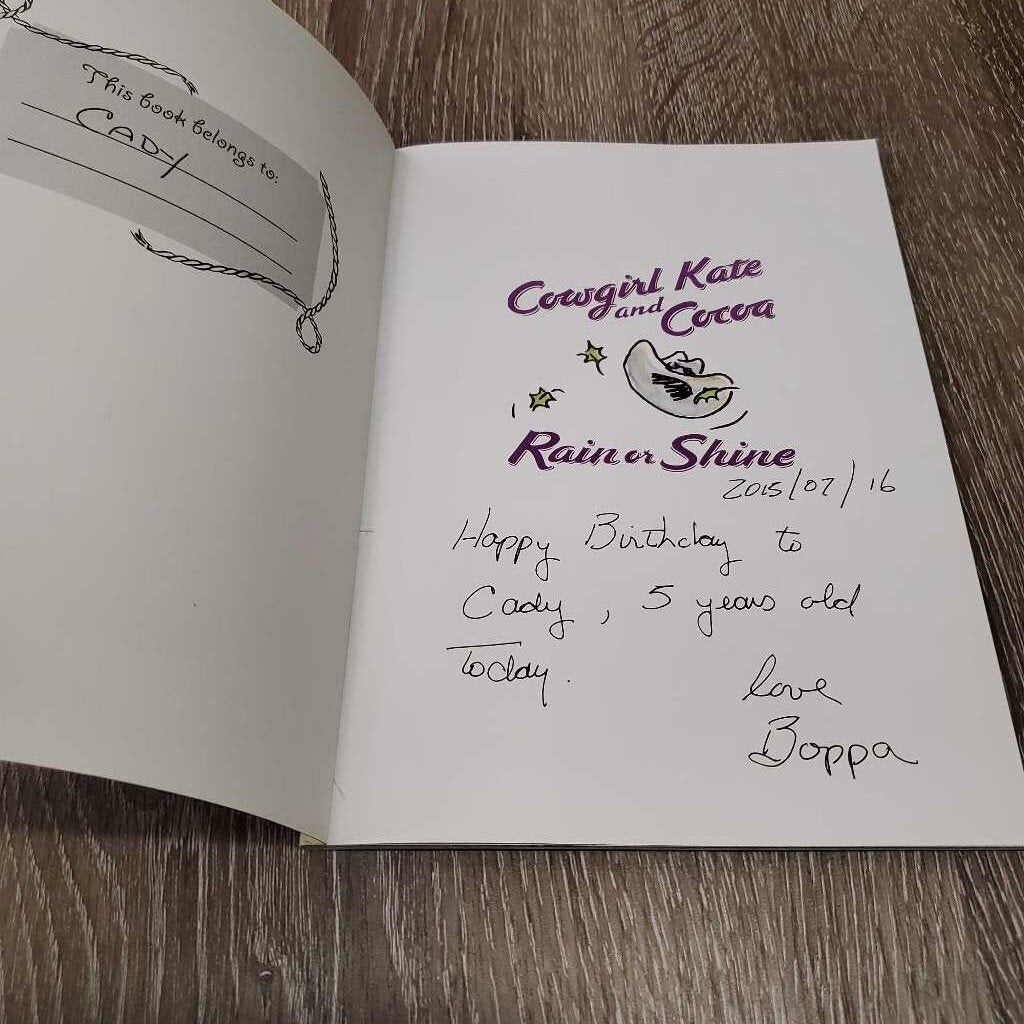 This book belongs to:
CADY
Cowgirl Kate
and Cocoa
Rain or Shine
2015/07/16
Happy Birthday to
Cady, 5 years old
Today.
love
Boppa